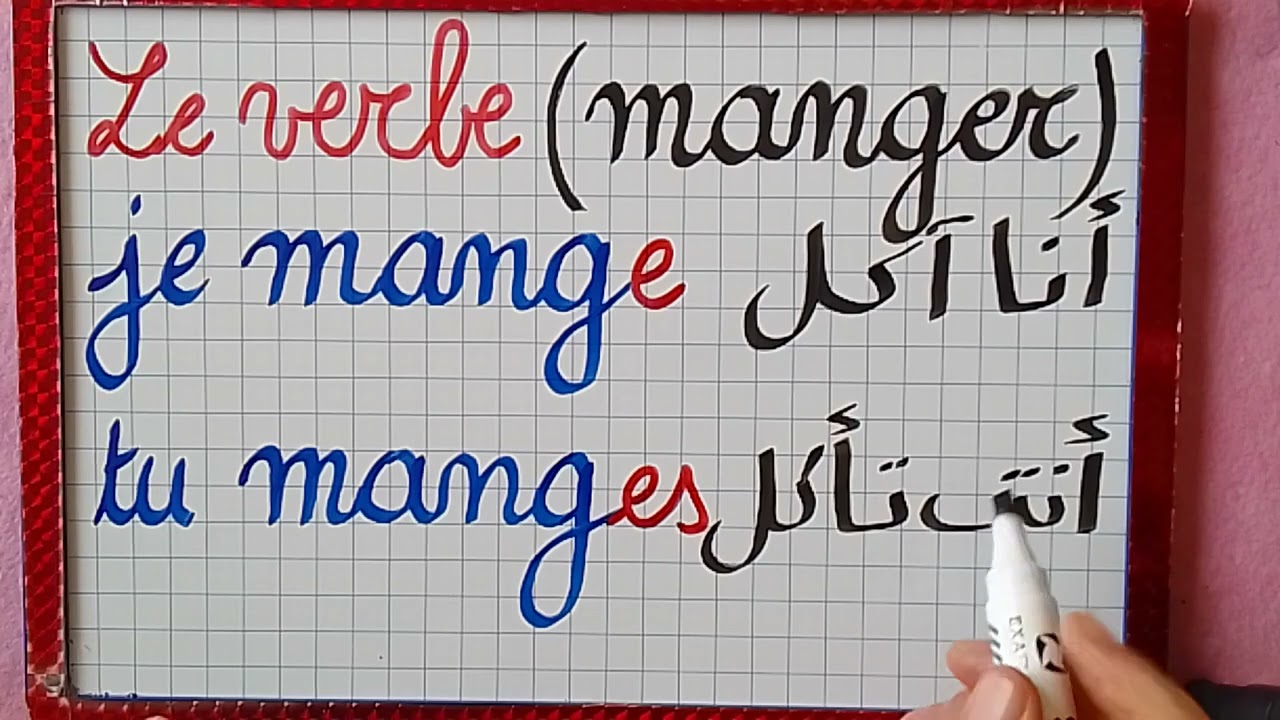 Le verbe (manger)
je mange أنا آكل
tu manges أنت تأكل